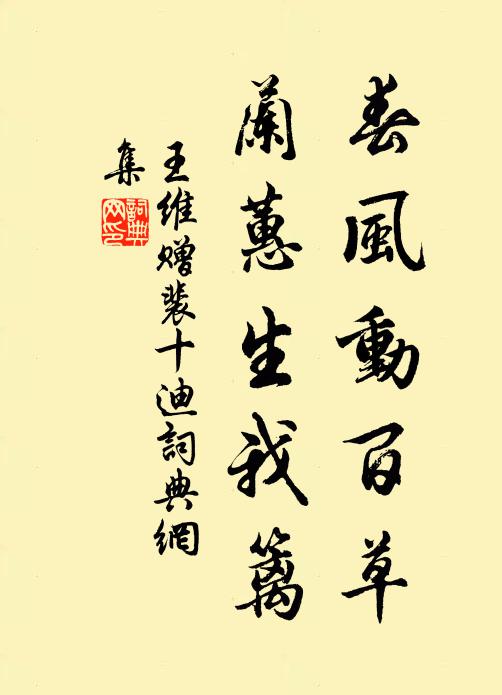 春風動百草
蘭蕙生我籬
王維贈裴十迪詞典網
集
詞典
网印